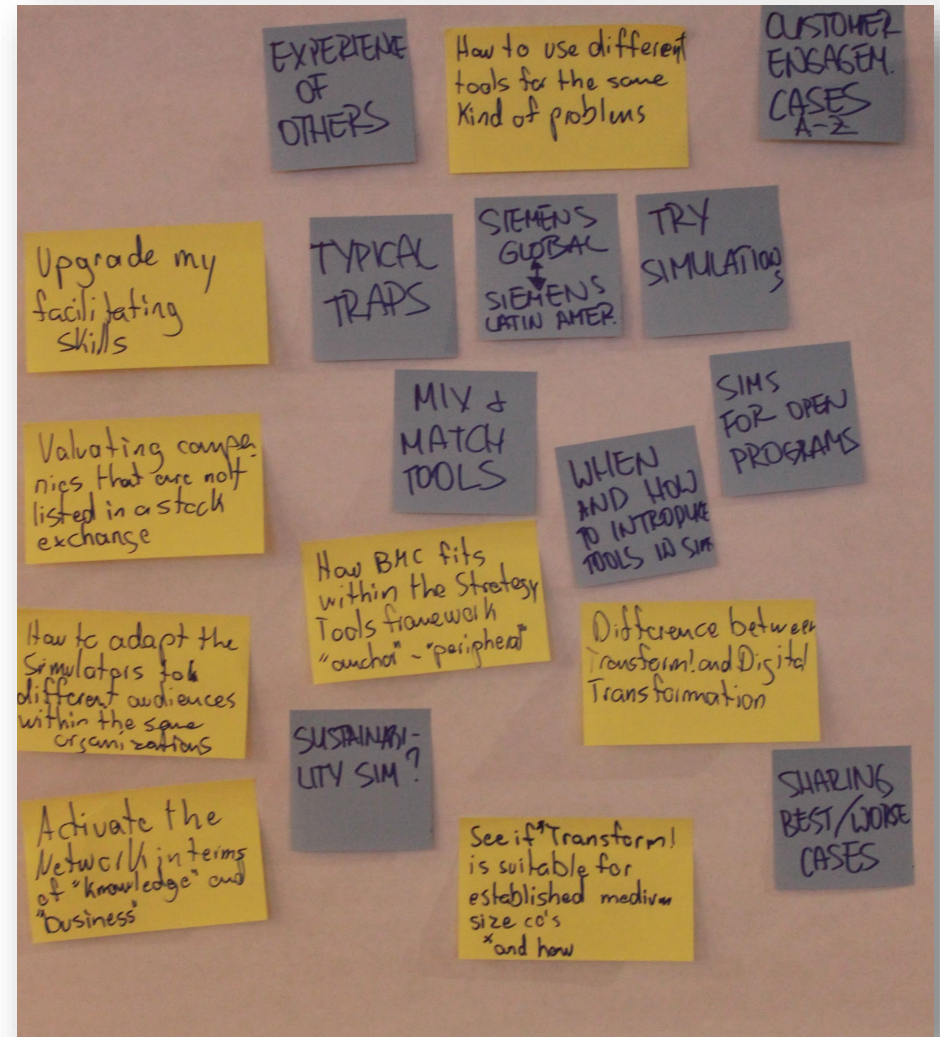 EXPERIENCE
OF
OTHERS
How to use different
tools for the same
Kind of problems
CUSTOMER
ENGAGEM.
CASES
A-Z
Upgrade my
facilitating
skills
TYPICAL
TRAPS
SIEMENS
GLOBAL
SIEMENS
LATIN AMER.
TRY
SIMULATIONS
MIX &
MATCH
TOOLS
SIMS
FOR OPEN
PROGRAMS
Valuating compa-
nies that are not
listed in a stock
exchange
WHEN
AND HOW
TO INTRODUCE
TOOLS IN SIM
How BMC fits
within the Strategy
Tools framework
"anchor" - "peripheral"
How to adapt the
Simulators for
different audiences
within the same
organizations
Difference between
Transform! and Digital
Transformation
SUSTAINABI-
LITY SIM?
SHARING
BEST/WORSE
CASES
Activate the
Network in terms
of "knowledge" and
"business"
See if* Transform!
is suitable for
established medium
size co's
*and how